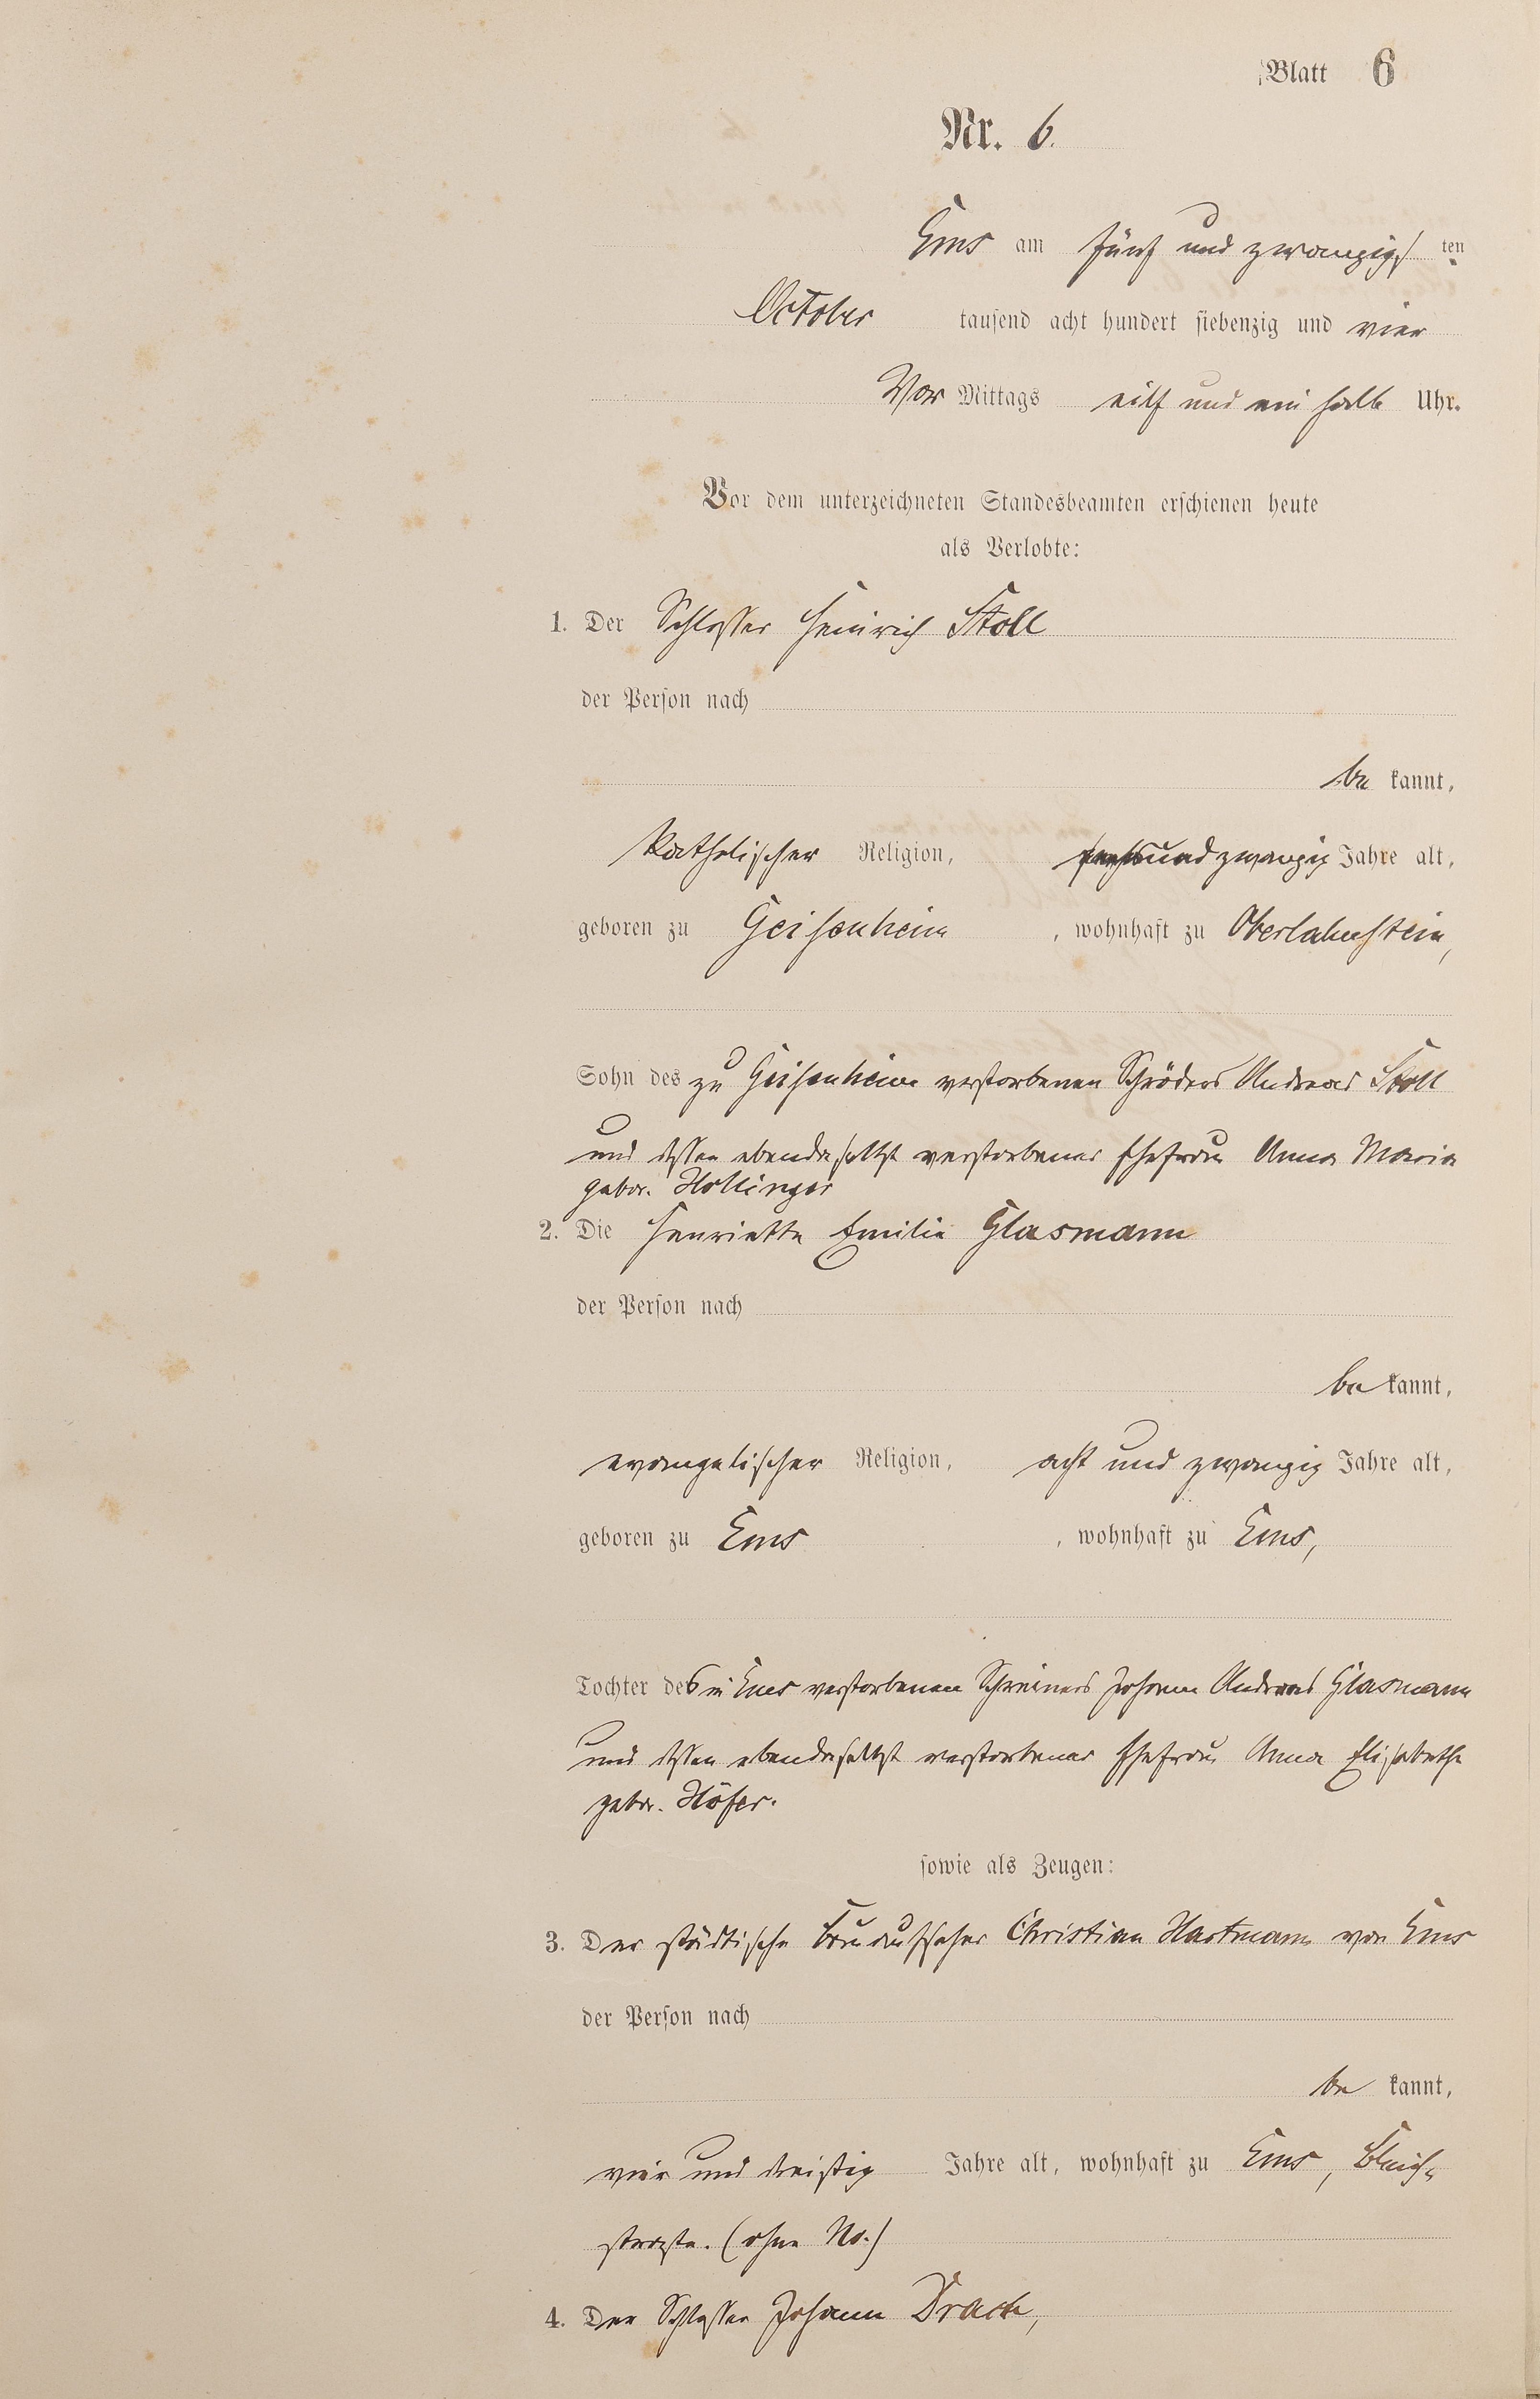 Blatt 6
Nr. 6.
Ems am fünf und zwanzigs ten
October tausend acht hundert siebenzig und vier
Vor Mittags eilf und ein halb Uhr.
Vor dem unterzeichneten Standesbeamten erschienen heute
als Verlobte:
1. Der Schlosser Heinrich Stoll
der Person nach
be kannt,
katholischer Religion, sechsundzwanzig Jahre alt,
geboren zu Geisenheim , wohnhaft zu Oberlahnstein,
Sohn des zu Geisenheim verstorbenen Schröders Andreas Stoll
und dessen ebendaselbst verstorbener Ehefrau Anna Maria
gebor. Hollinger
2. Die Henriette Emilie Glasmann
der Person nach
be kannt,
evangelischer Religion, acht und zwanzig Jahre alt,
geboren zu Ems , wohnhaft zu Ems,
Tochter des in Ems verstorbenen Schreiners Johann Andreas Glasmann
und dessen ebendaselbst verstorbener Ehefrau Anna Elisabeth
gebor. Höfer.
sowie als Zeugen:
3. Der städtische Bauaufseher Christian Hartmann von Ems
der Person nach
be kannt,
vier und dreißig Jahre alt, wohnhaft zu Ems, Bleich-
straße. (ohne No.)
4. Der Schlosser Johann Drack,